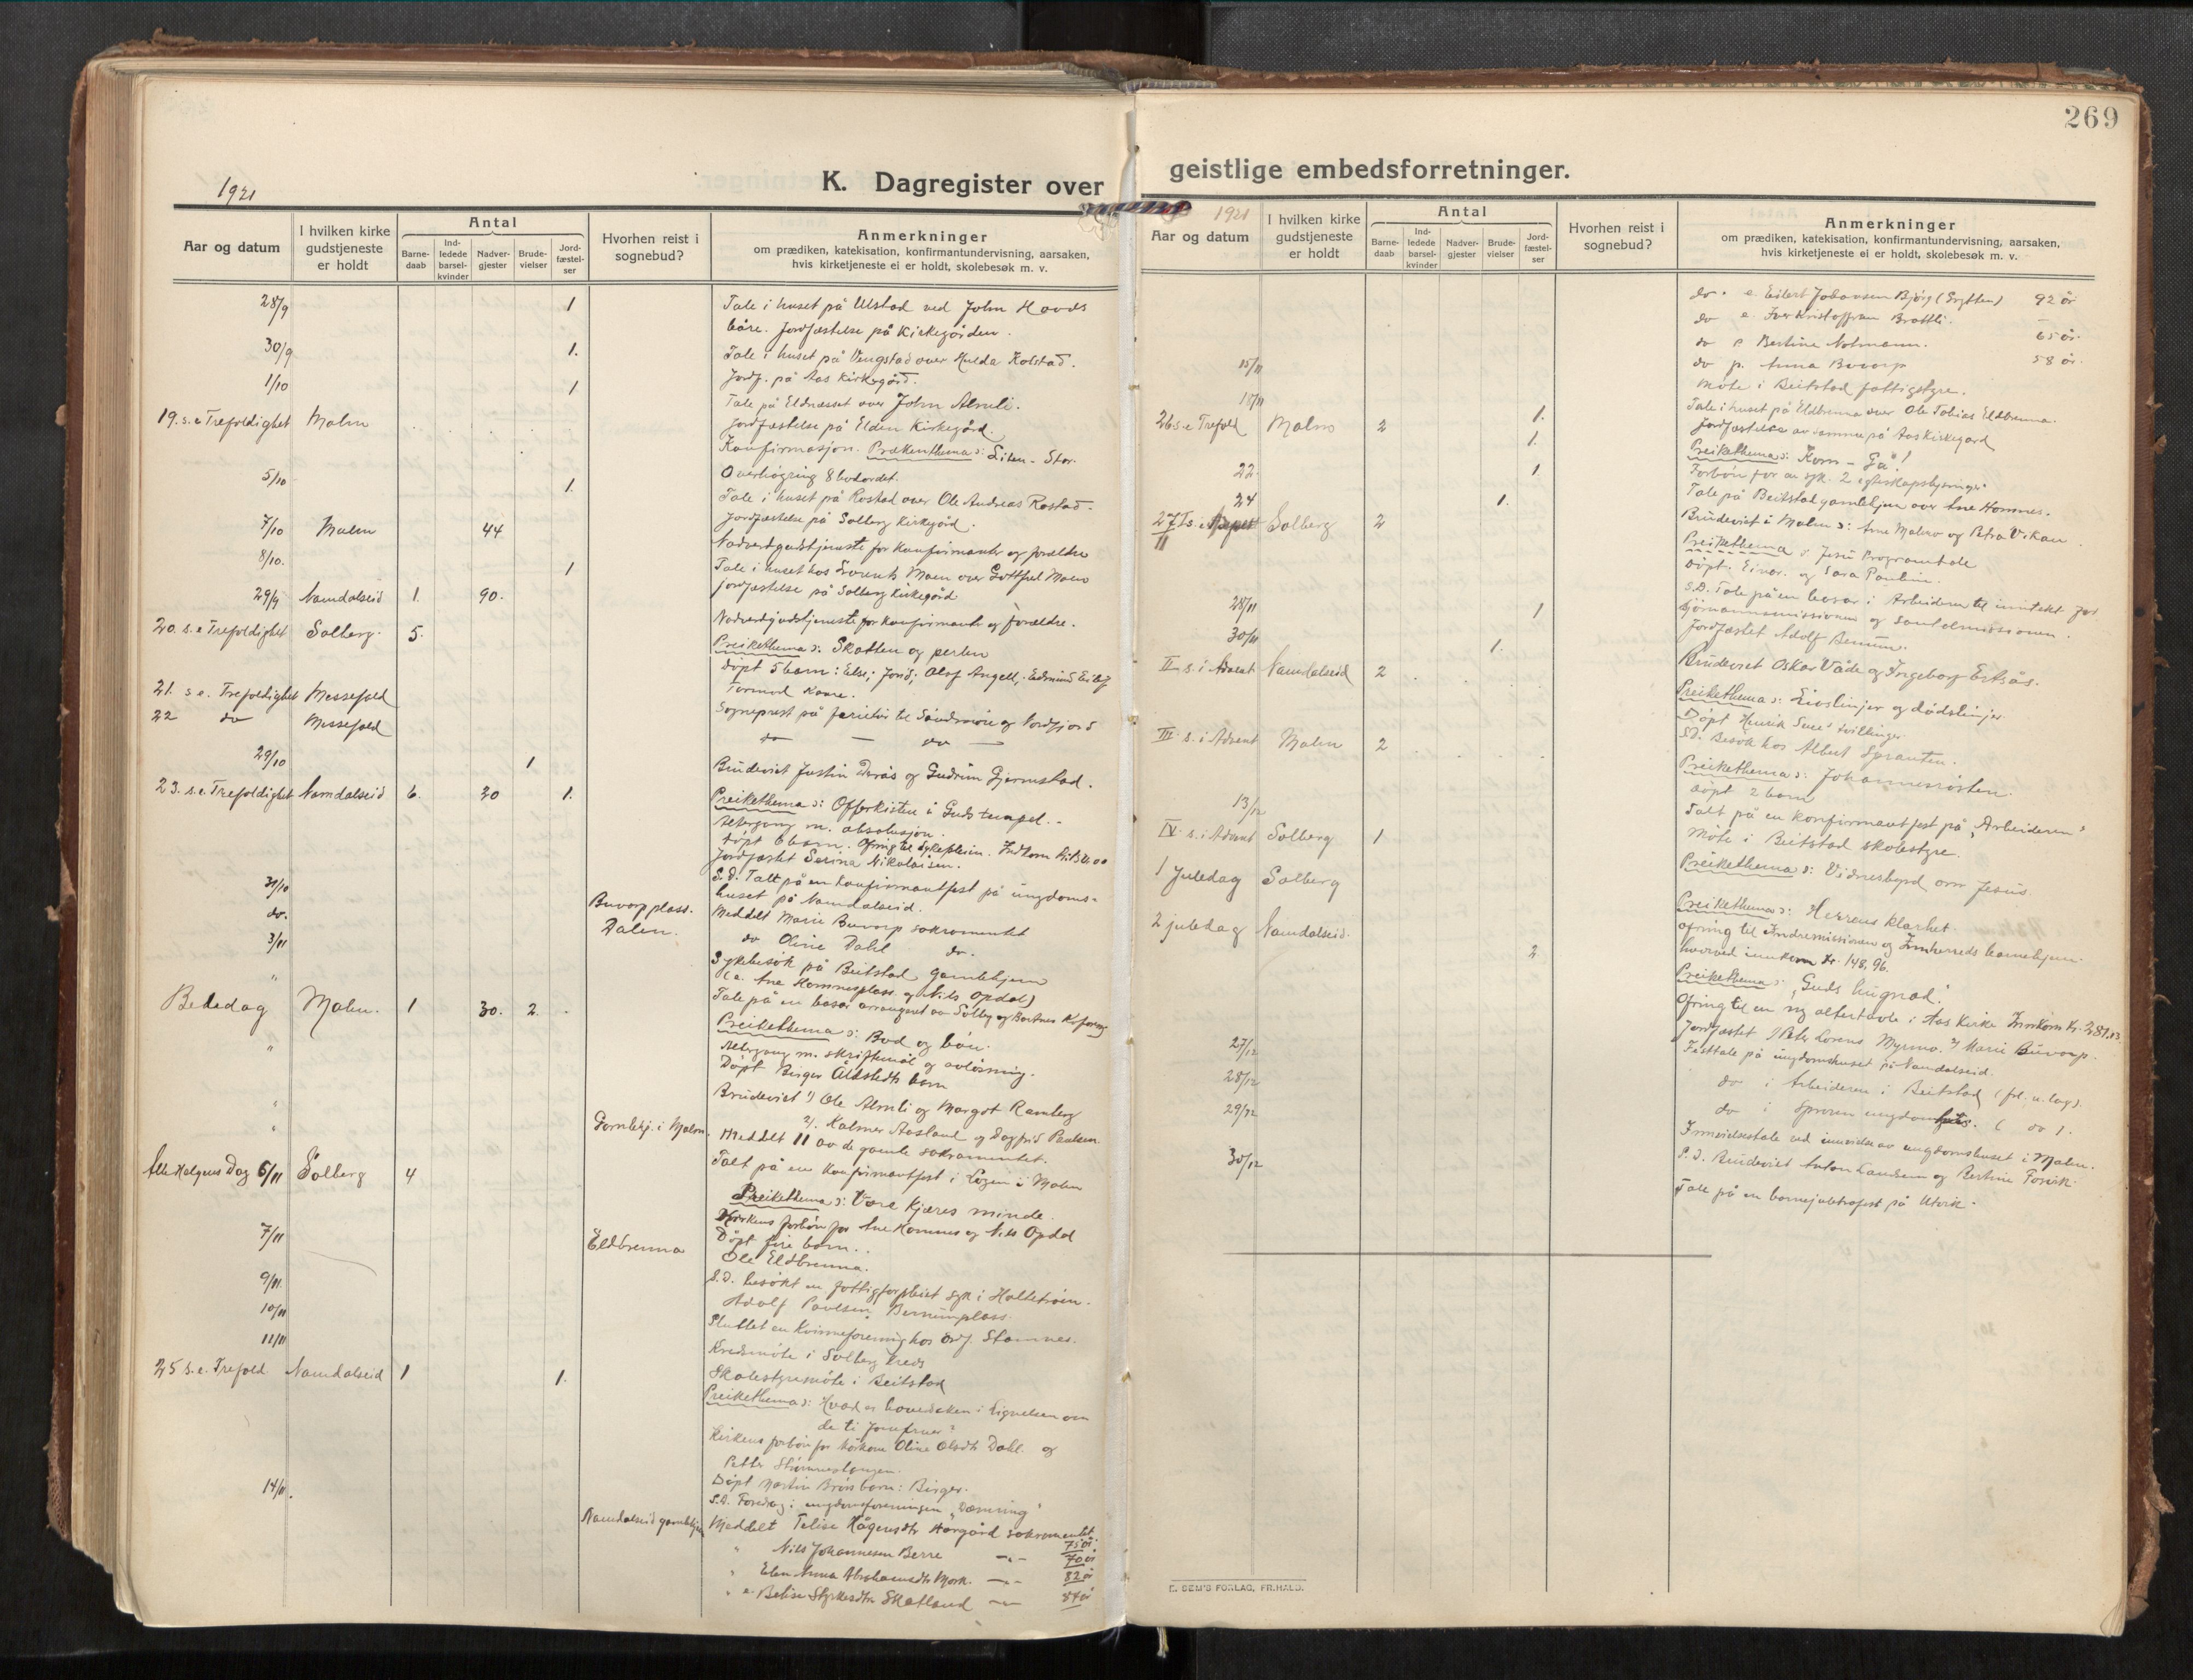 269
1921
K. Dagregister over
geistlige embedsforretninger.
Aar og datum
I hvilken kirke gudstjeneste er holdt
Antal
Barne-daab
Ind-ledede barsel-kvinder
Nadver-gjester
Brude-vielser
Jord-fæstel-ser
Hvorhen reist i sognebud?
Anmerkninger
om prædiken, katekisation, konfirmantundervisning, aarsaken,
hvis kirketjeneste ei er holdt, skolebesøk m. v.
28/9 1 Tale i huset på Ulstad ved John Hovds
båre. Jordfæstelse på Kirkegården.
30/9 1. Tale i huset på Vengstad over Hulda Kolstad.
Jordf. på Aas Kirkegård.
1/10 1 Tale på Eldnæsset over John Almli.
Jordfæstelse på Elden Kirkegård.
19. s. e Trefoldighet Malm Konfirmasjon. Prækenthema: Liten - Stor.
Overhøring 8 bodordet.
5/10 1. Tale i huset på Rostad over Ole Andreas Rostad.
Jordfæstelse på Solberg Kirkegård.
7/10 Malm 44 Nadverdgudstjeneste for konfirmanter og forældre
8/10. 1 Tale i huset hos Lorents Moen over Gottfred Moen
jordfæstelse på Solberg Kirkegård
29/9 Namdalseid 1. 90. Nadverdgudstjeneste for konfirmanter og forældre.
20. s. e Trefoldighet Solberg. 5. Preikethema: Skatten og perlen
Døpt 5 barn: Else; Jorid; Olaf Angell; Edmund Eilif
Tormod Kaare.
21. s e. Trefoldighet Messefald Sogneprest på ferietur til Søndmøre og Nordfjord
22 do Messefald do — do —
29/10 1 Brudeviet Justin Derås og Gudrun Gjermstad.
23. s. e. Trefoldighet Namdalseid 6. 30 1. Preikethema: Offerkisten i Guds tempel.
Altergang m. absolusjon.
Døpt 6 barn. Ofring til Sykepleien.
Jordfæstet Serina Nikolaisen.
S. d. Talt på en konfirmantfest på ungdoms-
huset på Namdalseid.
31/10 Buvarp plass. Meddelt Marie Buvarp sakramentet
do. Dalen. do Oline Dahl do.
3/11 Sykebesøk på Beitstad gamlehjem
(a. Ane Hommesplass og Nils Opdal)
" Tale på en basar arrangert av Solby og Bartnes
Bededag Malm. 1 30. 2. Preikethema: Bod og bøn.
Altergang m. skriftemål og avløsning.
" Døpt Birger Åldstedts barn
Brudeviet 1) Ole Almli og Margot Ramberg
2). Halmer Aasland og Dagfrid Paulsen.
" Gamlehj. i Malm. Meddelt 11 av de gamle sakramentet.
" Talt på en konfirmantfest i Logen i Malm
Alle Helgens Dag 6/11 Solberg 4 Preikethema: Vore kjæres minde.
Kirkens forbøn for Ane Hommes og Nils Opdal
Døpt fire barn.
7/11 Eldbrenna Ole Eldbrenna.
S. D. besøkt en fattigforpleiet syk i Holletrøen.
9/11. Adolf Paulsen Bernumplass.
10/11 Sluttet en Kvinneforening hos ordf. Stamnes.
11/11 Kredsmøte i Solberg Kreds
Skolestyremøte i Beitstad
25 s. e. Trefold Namdalseid 1 1. Preikethema: Hvad er hovedsaken i Lignelsen om
de ti jomfruer?
Kirkens forbøn for Oline Olsdtr Dahl. og
Petter
Døpt Martin Brørs barn: Birger.
S. d. Foredrag i ungdomsforeningen "Dæmring"
14/11. Namdalseid gamlehjem Meddelt Telise Hågensdtr Hargård sakramentet. 75 år.
" Nils Johannesen Berre —"— 70 år
" Elen Anna Abrahamsdtr Mork. —"— 82 år
" e. Betise Styrkesdtr Skatland —"— 84 år
1921
Aar og datum
I hvilken kirke gudstjeneste er holdt
Antal
Barne-daab
Ind-ledede barsel-kvinder
Nadver-gjester
Brude-vielser
Jord-fæstel-ser
Hvorhen reist i sognebud?
Anmerkninger
om prædiken, katekisation, konfirmantundervisning, aarsaken,
hvis kirketjeneste ei er holdt, skolebesøk m. v.
do. e. Eilert Johansen Bjørg 92 år
do e. Ivar Kristoffersen Brattli. —
do p Bertine Notmann. 65 år.
do p. Anna Buvarp 58 år.
15/11 Møte i Beitstad fattigstyre.
Tale i huset på Eldbrenna over Ole Tobias Eldbrenna. 1.
Jordfæstelse av samme på Aas Kirkegård 1.
26 s. e Trefold Malm 2 Preikethema: "Kom - Gå"!
Forbøn for en syk. 2 egteskapslysninger
22. 1 Tale på Beitstad gamlehjem over Ane Hommes.
24 1. Brudeviet i Malm: Arne Malmo og Petra Vikan.
27/11 Solberg 2 Preikethema: Jesu Programtale
Døpt. Einar. og Sara Paulin.
S. D. Tale på en basar i Arbeideren til inntekt for
sjømannsmissionen og Santalmissionen.
28/11 1 Jordfæstet Adolf Bernum.
30/11 1. Brudeviet Oskar Våde og Ingeborg Ertsås.
II s. i Advent Namdalseid 2 Preikethema: Livslinjer og dødslinjer
Døpt Henrik tvillinger
S. D. Besøk hos Albert Spranten.
III s. i Advent Malm 2 Preikethema: Johannesrøsten.
Døpt 2 barn
Talt på en konfirmantfest på "Arbeideren"
13/12 Møte i Beitstad skolestyre.
IV s. i Advent Solberg 1 Preikethema: Vidnesbyrd om Jesus.
1 Juledag Solberg Preikethema: Herrens klarhet
Ofring til Indremissionen og Innherreds barnehjem
hvorved innkom kr. 148,96.
2 juledag Namdalseid. Preikethema: "Guds hugnad".
Ofring til en ny altertavle i Aas Kirke Innkom Kr. 281.13
2 Jordfæstet 1) Peter Lorens Myrmo. 2) Marie Buvarp.
27/12 Festtale på ungdomshuset på Namdalseid.
28/12 do i Arbeideren i Beitstad (fol. u. lag).
29/12 do i Sprova ungdomshus. ( do ).
Innvielsestale ved innvielse av ungdomshuset i Malm.
30/12 S. D. Brudeviet Anton Landsem og Bertine Forvik.
Tale på en barnejuletrefest på Utvik.
E. SEM'S FORLAG, FR.HALD.